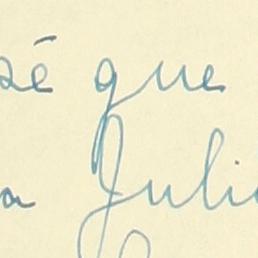 sé que
a Juli